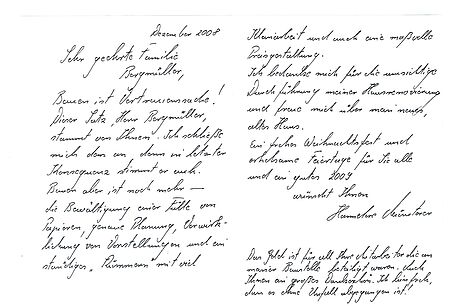 Dezember 2008
Sehr geehrte Familie
Bergmüller,
Bauen ist Vertrauenssache!
Dieser Satz, Herr Bergmüller,
stammt von Ihnen! Ich schließe
mich dem an, denn in letzter
Konsequenz stimmt er auch.
Bauen aber ist noch mehr —
die Bewältigung einer Fülle von
Papieren, genaue Planung, Verwirk-
lichung von Vorstellungen und ein
ständiges mit viel
Kleinarbeit und auch eine maßvolle
Preisgestaltung.
Ich bedanke mich für die umsichtige
Durchführung meiner Haussanierung
und freue mich über mein neues,
altes Haus.
Ein frohes Weihnachtsfest und
erholsame Feiertage für Sie alle
und ein gutes 2009
wünscht Ihnen
Hannelore
Das Geld ist für all Ihre Mitarbeiter die an
meiner Baustelle beteiligt waren. Auch
Ihnen ein großes Dankeschön. Ich bin froh,
dass es ohne Unfall abgegangen ist!